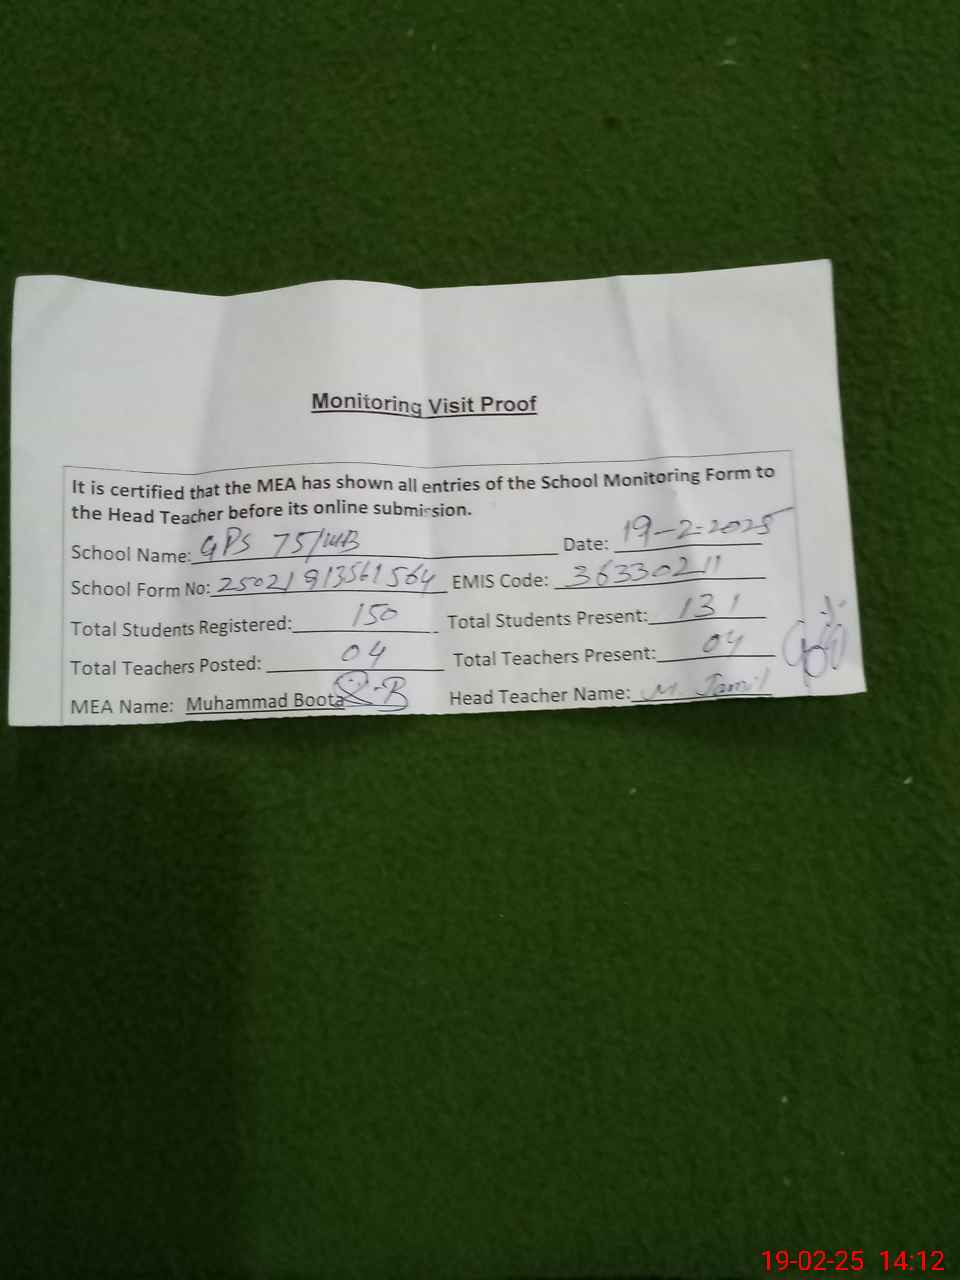 Monitoring Visit Proof
It is certified that the MEA has shown all entries of the School Monitoring Form to
the Head Teacher before its online submission.
School Name: GPS 75/WB Date: 19-2-2025
School Form No: 25021913561564 EMIS Code: 36330211
Total Students Registered: 150 Total Students Present: 131
Total Teachers Posted: 04 Total Teachers Present: 04
MEA Name: Muhammad Boota Head Teacher Name: M. Jamil
19-02-25 14:12